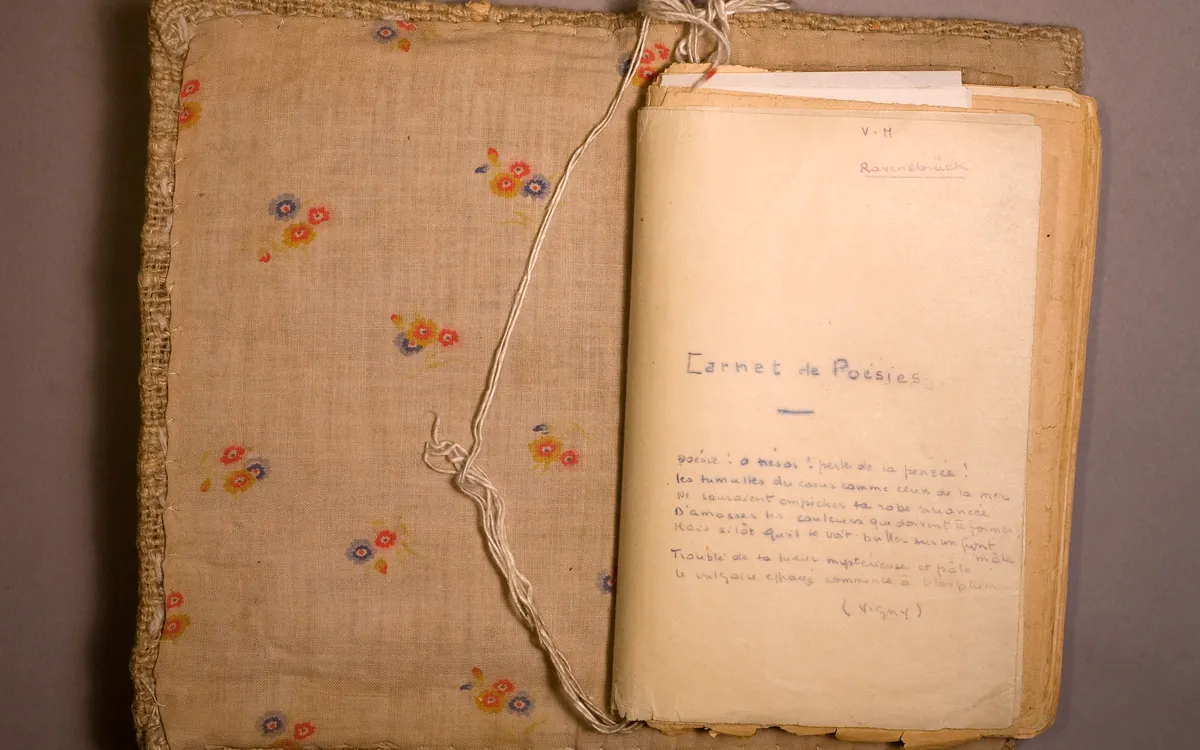 V. M
Ravensbrück
Carnet de Poésies
poésie ! o trésor ! perle de la pensée !
les tumultes du coeur comme ceux de la mer
Ne sauraient empêcher ta robe nuancée
D'amasser les couleurs qui doivent te former
Mais sitôt qu'il te voit briller sur un front
mâle
Troublé de ta lueur mystérieuse et pâle
le vulgaire effrayé commence à blasphémer
(Vigny)